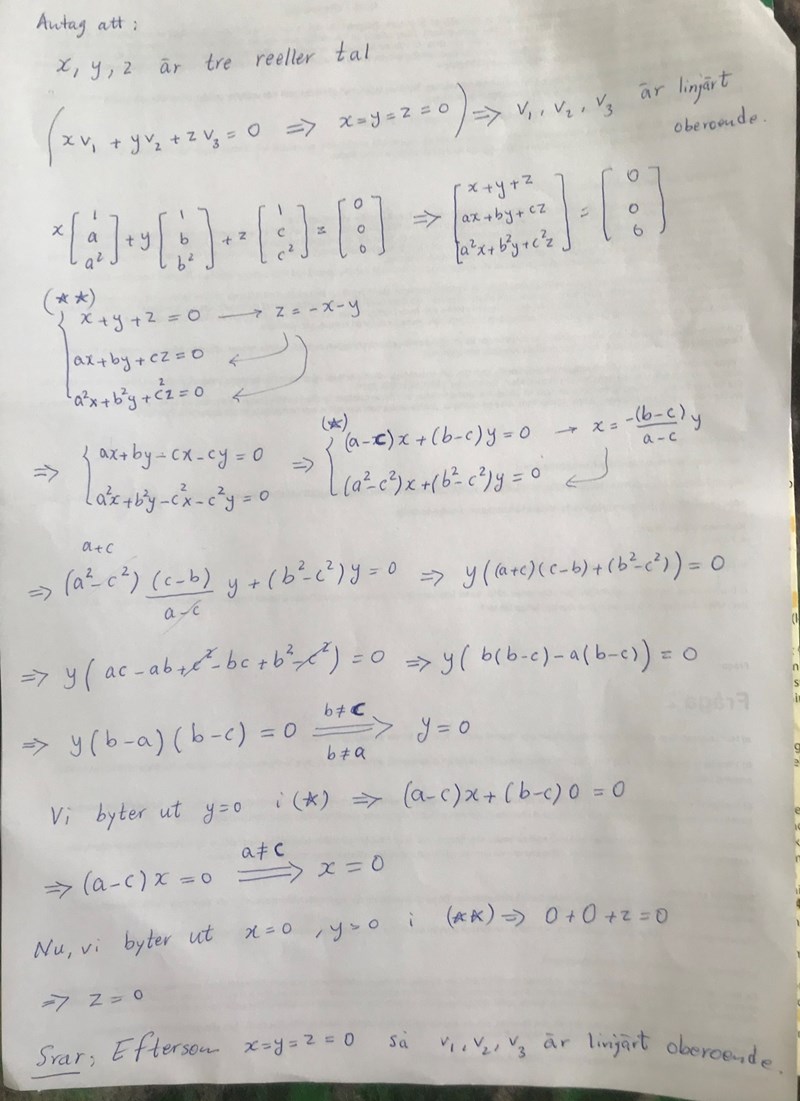 Antag att :
x, y, z är tre reeller tal
(x v₁ + y v₂ + z v₃ = 0 ⇒ x=y=z=0) ⇒ v₁, v₂, v₃ är linjärt oberoende.
x [1 a a²] + y [1 b b²] + z [1 c c²] = [0 0 0] ⇒ [x+y+z ax+by+cz a²x+b²y+c²z] = [0 0 0]
(**)
x+y+z=0 → z=-x-y
ax+by+cz=0
a²x+b²y+c²z=0
(*)
⇒ { ax+by-cx-cy=0 ⇒ { (a-c)x+(b-c)y=0 → x = -(b-c)/(a-c) y
a²x+b²y-c²x-c²y=0 (a²-c²)x+(b²-c²)y=0
a+c
⇒ (a²-c²) (c-b)/(a-c) y + (b²-c²)y=0 ⇒ y((a+c)(c-b)+(b²-c²))=0
⇒ y(ac-ab+c²-bc+b²-c²)=0 ⇒ y(b(b-c)-a(b-c))=0
⇒ y(b-a)(b-c)=0 b≠c ⇒ b≠a y=0
Vi byter ut y=0 i (*) ⇒ (a-c)x+(b-c)0=0
⇒ (a-c)x=0 a≠c ⇒ x=0
Nu, vi byter ut x=0, y=0 i (**) ⇒ 0+0+z=0
⇒ z=0
Svar; Eftersom x=y=z=0 så v₁, v₂, v₃ är linjärt oberoende.
Fråga